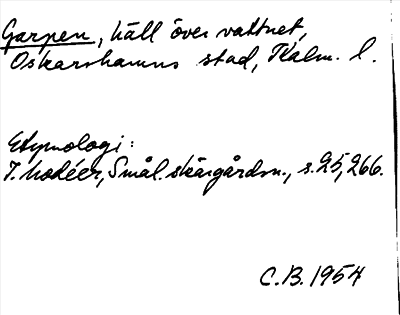 Garpen, häll över vattnet,
Oskarshamns stad, Kalm. l.
Etymologi:
I. Modéer, Smål. skärgårdsn., s. 25, 266.
C.B. 1954